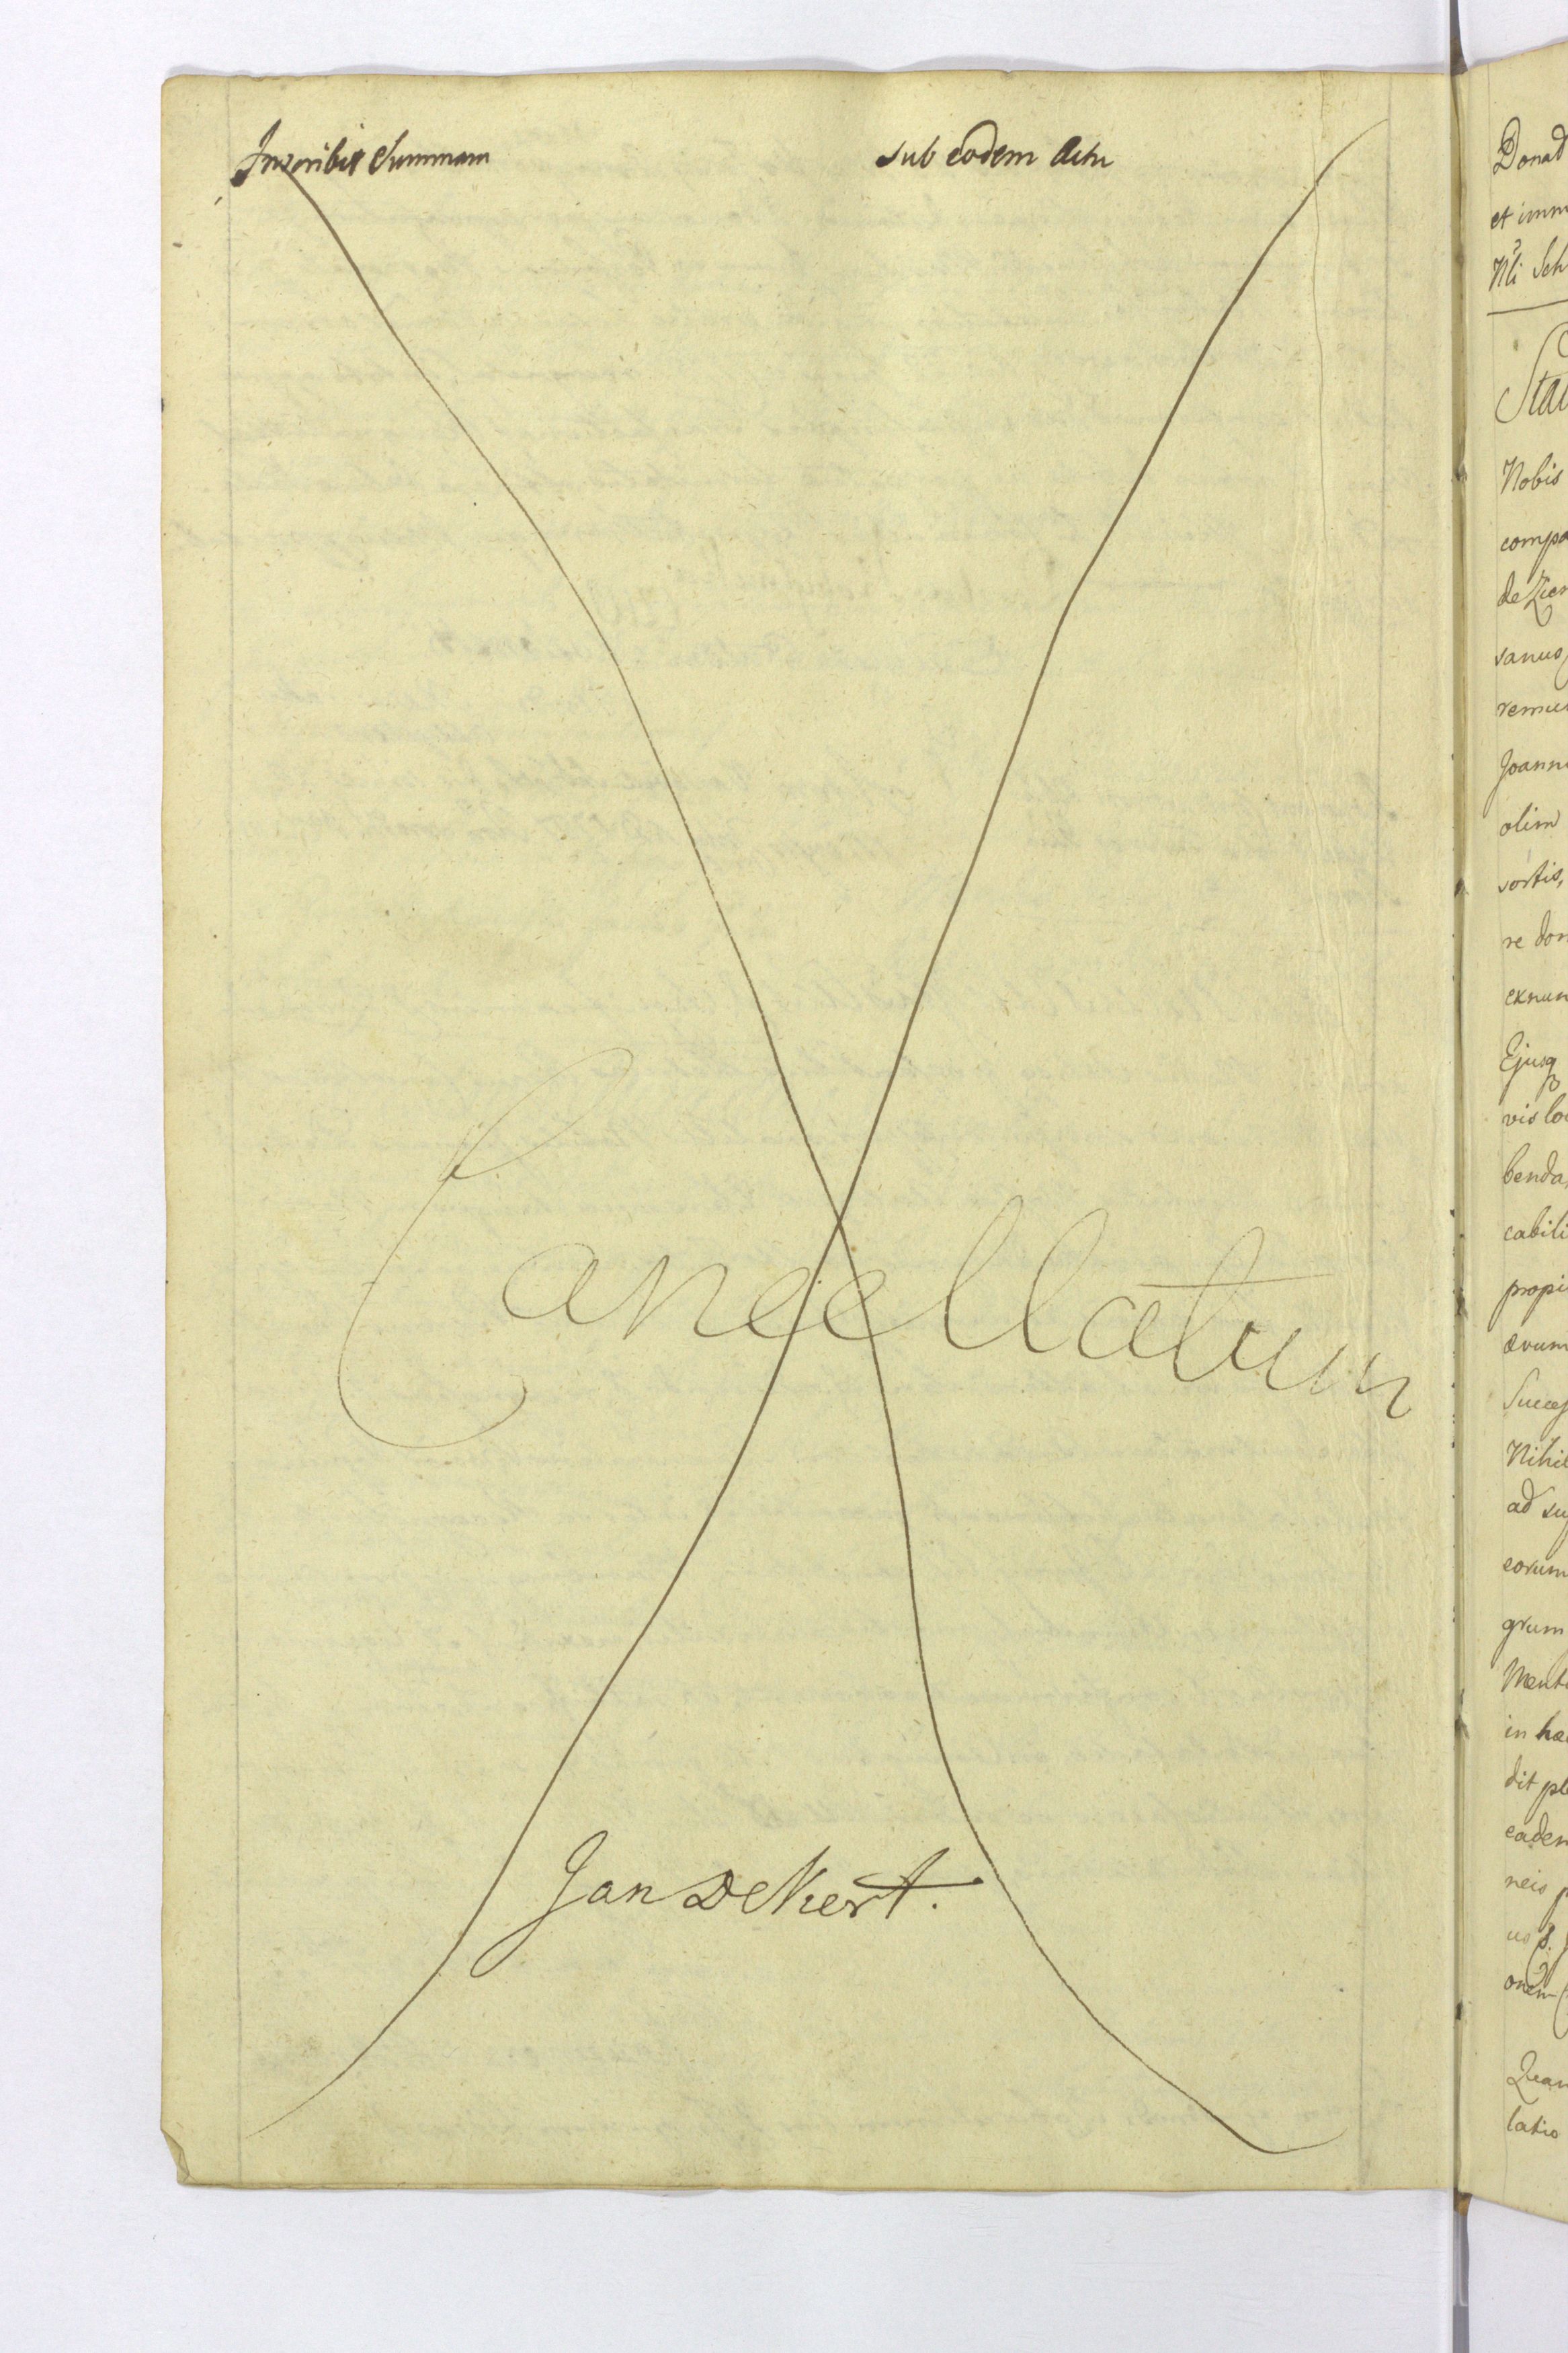 Inscribit Summam sub eodem Actu
Cancellatum
Jan Dekert.
Donat
et imm
Nli Sch
Stan
Nobis
compa
de Zier
sanus
remu
Joann
olim
sortis,
re don
exnun
Ejusq
vis lo
benda,
cabili
propi
ævum
Succes
Nihil
ad su
eorum
grum
Ment
in hæ
dit pl
eadem
neis p
us s.
onem
Quar
latio